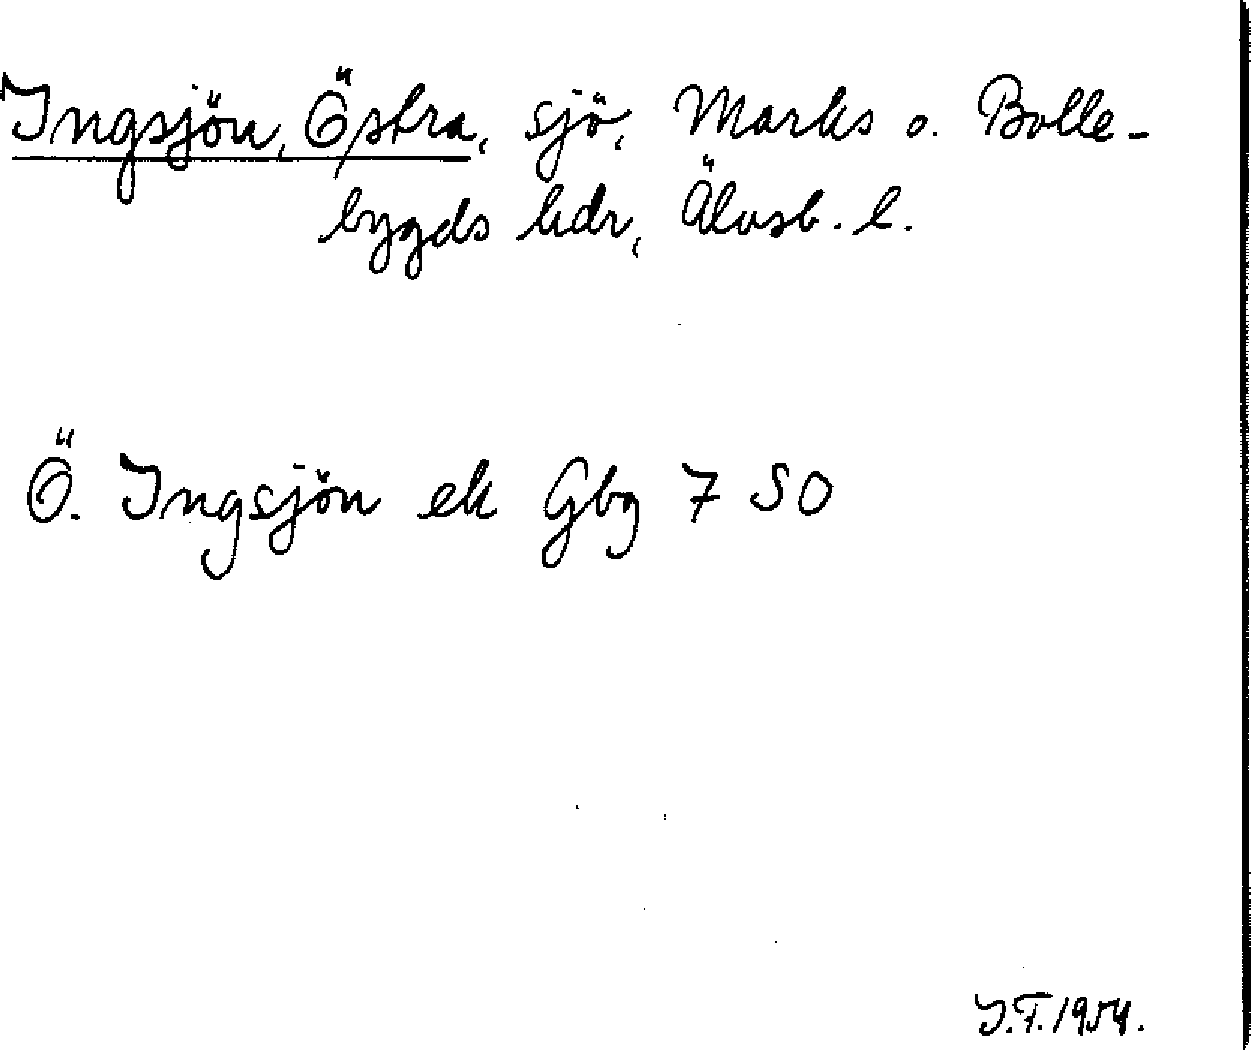 Ingsjön, Östra, sjö, Marks o. Bolle-
bygds hdr, Älvsb. l.
Ö. Ingsjön ek Gbg 7 SO
I.F. 1954.